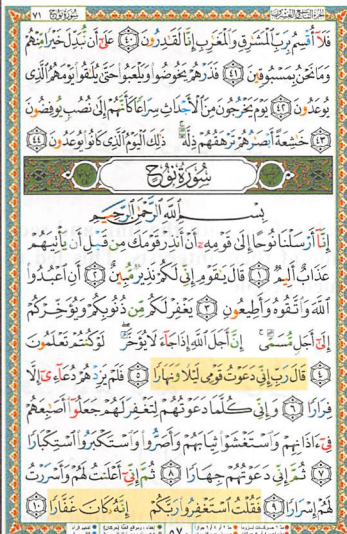 سُورَةُ نُوحٍ ٧١
فَلَا أُقْسِمُ بِرَبِّ الْمَشَارِقِ وَالْمَغَارِبِ إِنَّا لَقَادِرُونَ ٤٠ عَلَىٰ أَن نُّبَدِّلَ خَيْرًا مِّنْهُمْ
وَمَا نَحْنُ بِمَسْبُوقِينَ ٤١ فَذَرْهُمْ يَخُوضُوا وَيَلْعَبُوا حَتَّىٰ يُلَاقُوا يَوْمَهُمُ الَّذِي
يُوعَدُونَ ٤٢ يَوْمَ يَخْرُجُونَ مِنَ الْأَجْدَاثِ سِرَاعًا كَأَنَّهُمْ إِلَىٰ نُصُبٍ يُوفِضُونَ
٤٣ خَاشِعَةً أَبْصَارُهُمْ تَرْهَقُهُمْ ذِلَّةٌ ذَٰلِكَ الْيَوْمُ الَّذِي كَانُوا يُوعَدُونَ ٤٤
سُورَةُ نُوحٍ
بِسْمِ اللَّهِ الرَّحْمَٰنِ الرَّحِيمِ
إِنَّا أَرْسَلْنَا نُوحًا إِلَىٰ قَوْمِهِ أَنْ أَنذِرْ قَوْمَكَ مِن قَبْلِ أَن يَأْتِيَهُمْ
عَذَابٌ أَلِيمٌ ١ قَالَ يَا قَوْمِ إِنِّي لَكُمْ نَذِيرٌ مُّبِينٌ ٢ أَنِ اعْبُدُوا
اللَّهَ وَاتَّقُوهُ وَأَطِيعُونِ ٣ يَغْفِرْ لَكُم مِّن ذُنُوبِكُمْ وَيُؤَخِّرْكُمْ
إِلَىٰ أَجَلٍ مُّسَمًّى إِنَّ أَجَلَ اللَّهِ إِذَا جَاءَ لَا يُؤَخَّرُ لَوْ كُنتُمْ تَعْلَمُونَ
٤ قَالَ رَبِّ إِنِّي دَعَوْتُ قَوْمِي لَيْلًا وَنَهَارًا ٥ فَلَمْ يَزِدْهُمْ دُعَائِي إِلَّا
فِرَارًا ٦ وَإِنِّي كُلَّمَا دَعَوْتُهُمْ لِتَغْفِرَ لَهُمْ جَعَلُوا أَصَابِعَهُمْ
فِي آذَانِهِمْ وَاسْتَغْشَوْا ثِيَابَهُمْ وَأَصَرُّوا وَاسْتَكْبَرُوا اسْتِكْبَارًا
٧ ثُمَّ إِنِّي دَعَوْتُهُمْ جِهَارًا ٨ ثُمَّ إِنِّي أَعْلَنتُ لَهُمْ وَأَسْرَرْتُ
لَهُمْ إِسْرَارًا ٩ فَقُلْتُ اسْتَغْفِرُوا رَبَّكُمْ إِنَّهُ كَانَ غَفَّارًا ١٠
٥٧٠